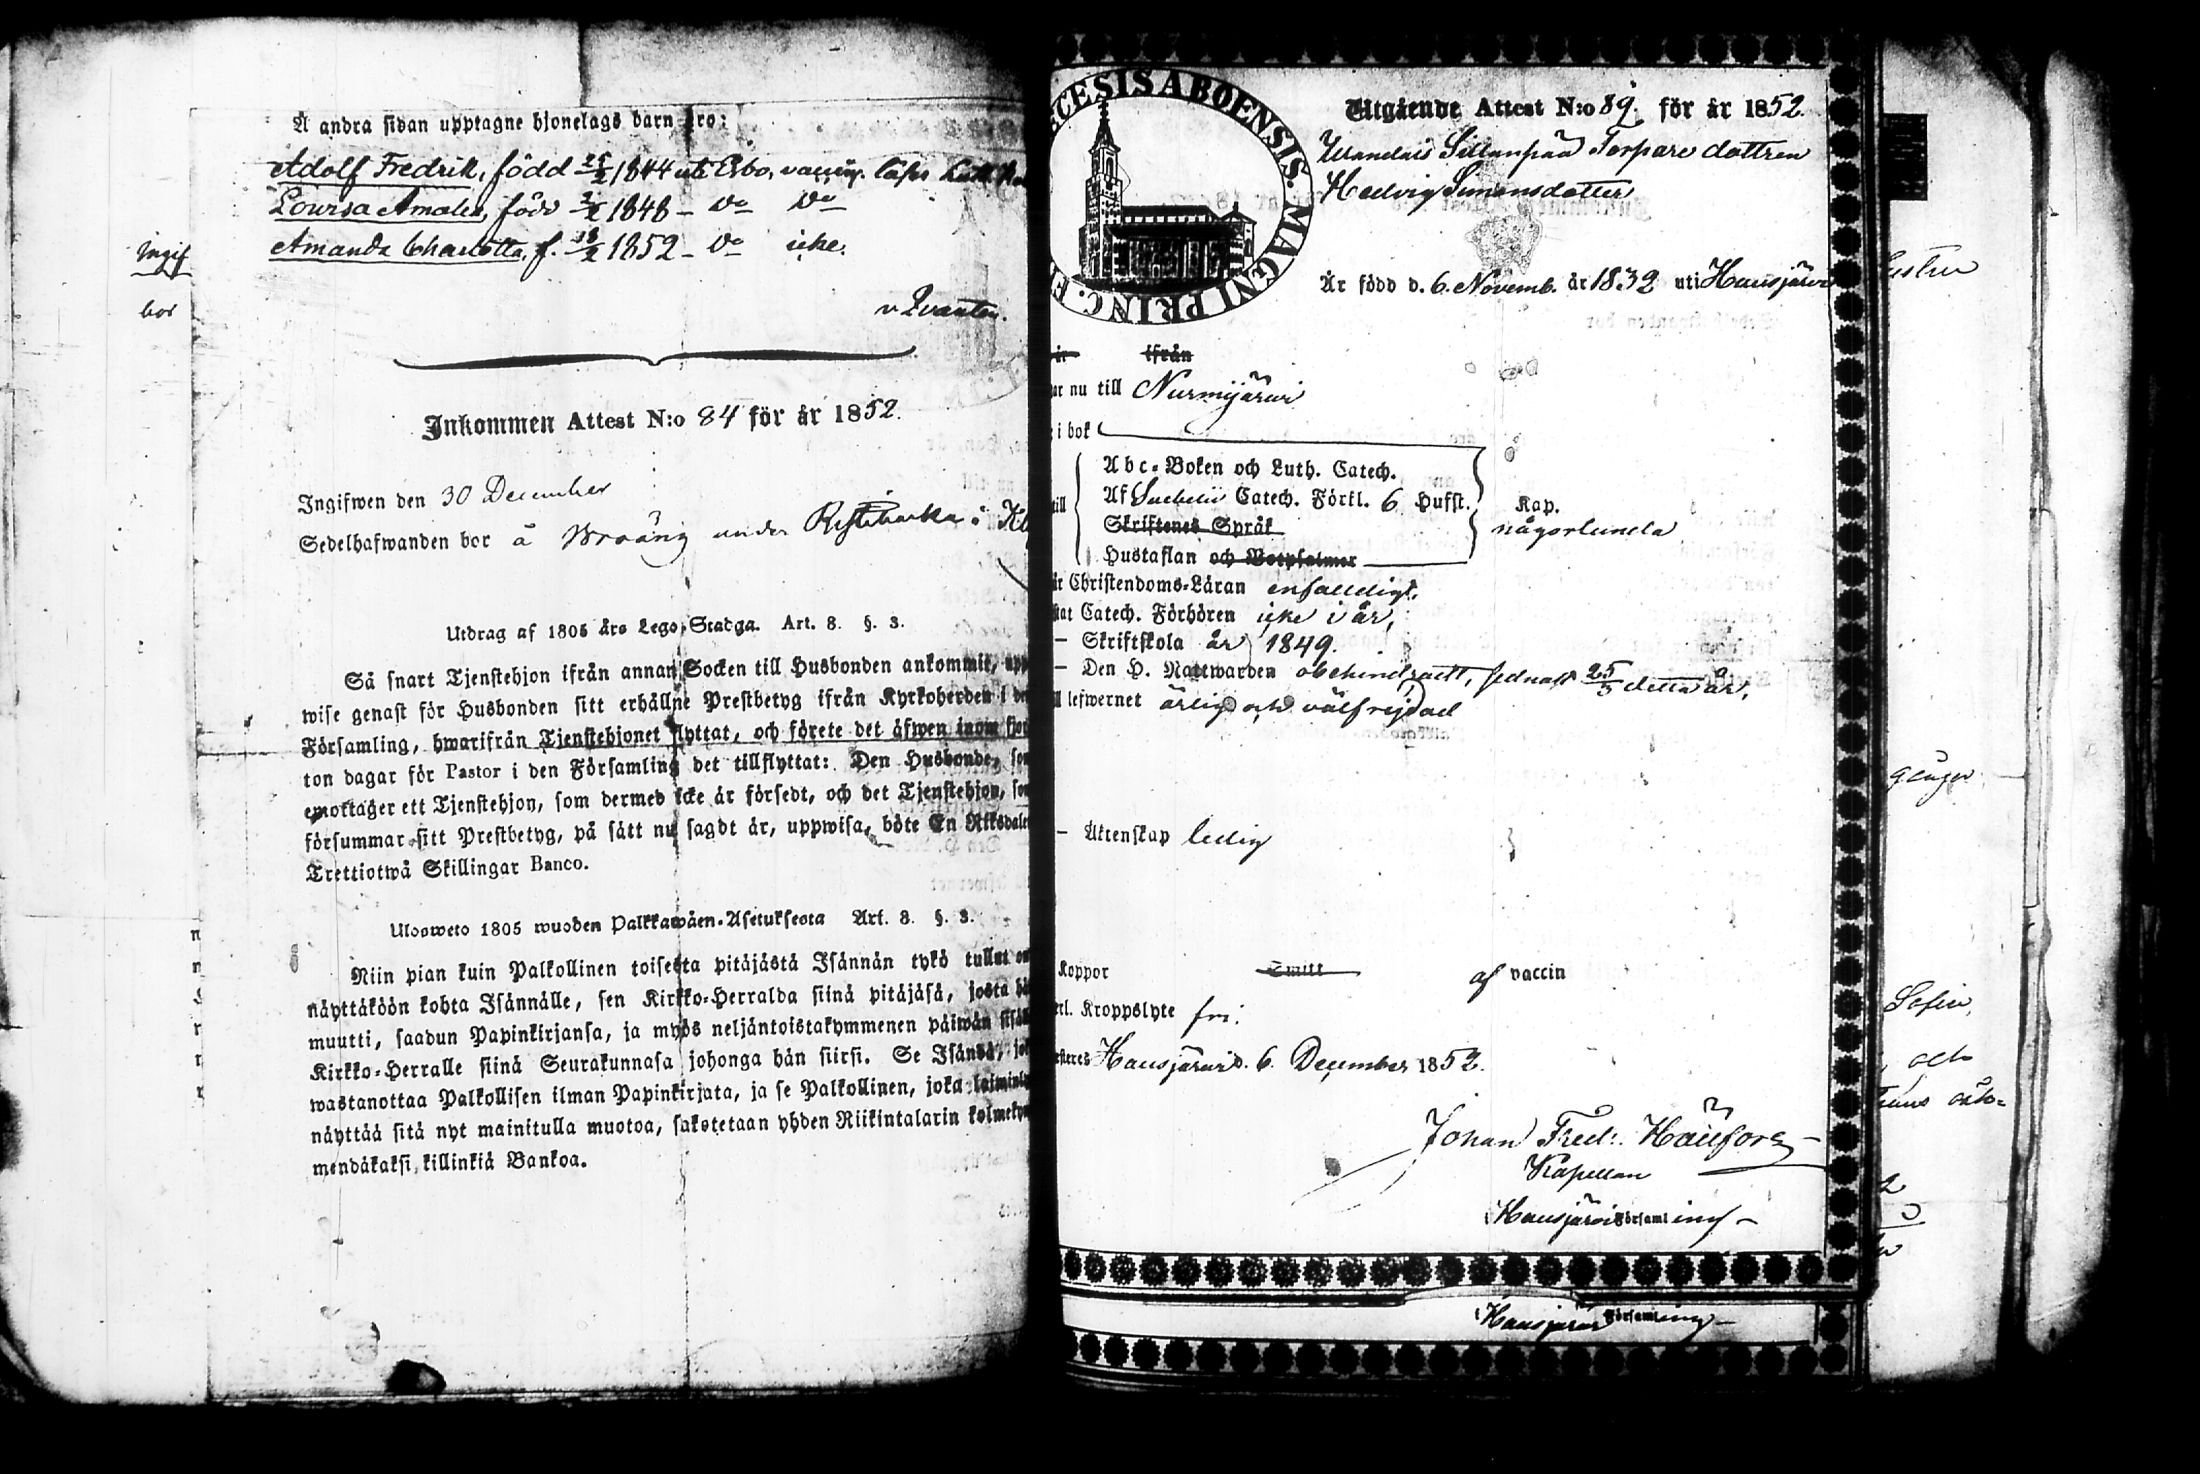 Å andra sidan upptagne hjonelags barn äro:
Adolf Fredrik, född 25/2 1844 uti Esbo, vaccin. läser Luth.
Lovisa Amalia, född 2/2 1848 – do do
Amanda Charlotta, f. 18/2 1852 – do icke.
v. Qvanten.
Ingif
bor
Inkommen Attest N:o 84 för år 1852.
Ingifwen den 30 December
Sedelhafwanden bor å under i
Utdrag af 1805 års Lego-Stadga. Art. 8. §. 3.
Så snart Tjenstehjon ifrån annan Socken till Husbonden ankommit, upp
wise genast för Husbonden sitt erhållne Prestbetyg ifrån Kyrkoherden i den
Församling, hwarifrån Tjenstehjonet flyttat, och förete det äfwen inom fjor
ton dagar för Pastor i den Församling det tillflyttat: Den Husbonde, som
emottager ett Tjenstehjon, som dermed icke är försedt, och det Tjenstehjon, som
försummar sitt Prestbetyg, på sätt nu sagdt är, uppwisa, böte En Riksdaler
Trettiotwå Skillingar Banco.
Ulosweto 1805 wuoden Palkkawäen-Asetuksesta Art. 8. §. 3.
Niin pian kuin Palkollinen toisesta pitäjästä Isännän tykö tullut on
näyttäköön kohta Isännälle, sen Kirkko-Herralda siinä pitäjäsä, josta hän
muutti, saadun Papinkirjansa, ja myös neljäntoistakymmenen päiwän sisäll
Kirkko-Herralle siinä Seurakunnasa johonga hän siirsi. Se Isändä, jok
wastanottaa Palkollisen ilman Papinkirjata, ja se Palkollinen, joka laiminly
näyttää sitä nyt mainitulla muotoa, sakotetaan yhden Riikintalarin kolmekym
mendäkaksi killinkiä Bankoa.
CESIS ABOENSIS. MAGNI PRINC. F
Utgående Attest N:o 89. för år 1852.
Sillanpää Torpare dottren
Hedvig Simonsdotter
Är född d. 6. Novemb. år 1832 uti Hausjärvi
är ifrån
ar nu till Nurmijärvi
i bok
till
Abc-Boken och Luth. Catech.
Af Svebelii Catech. Förkl. 6 Hufst. Kap.
Skriftenes Språk någorlunda
Hustaflan och Botpsalmer
är Christendoms-Läran enfaldigt.
stat Catech. Förhören icke i år,
– Skriftskola år 1849.
– Den H. Nattwarden obehindradt, sednast 25/5 detta år,
ll lefwernet ärlig och välfrejdad
– Äktenskap ledig
Koppor Smitt af vaccin
erl. Kroppslyte fri.
esteres Hausjärvi d. 6. December 1852.
Johan Fredr.
Kapellan
Hausjärvi Församling –
Hausjärvi Församling –
gånger
Sofia,
och